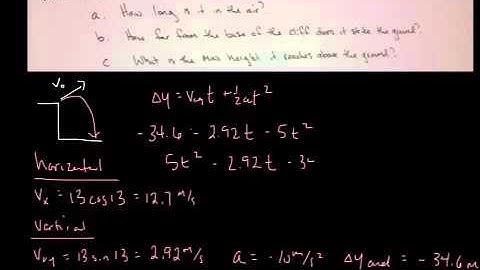 a. How long is it in the air?
b. How far from the base of the cliff does it strike the ground?
c What is the max height it reaches above the ground?
V₀
Δy = v₀yt + ½at²
-34.6 = 2.92t - 5t²
5t² - 2.92t - 3
horizontal
Vₓ = 13cos13 = 12.7 m/s
vertical
V₀y = 13sin13 = 2.92 m/s a = -10 m/s² Δy end = -34.6 m